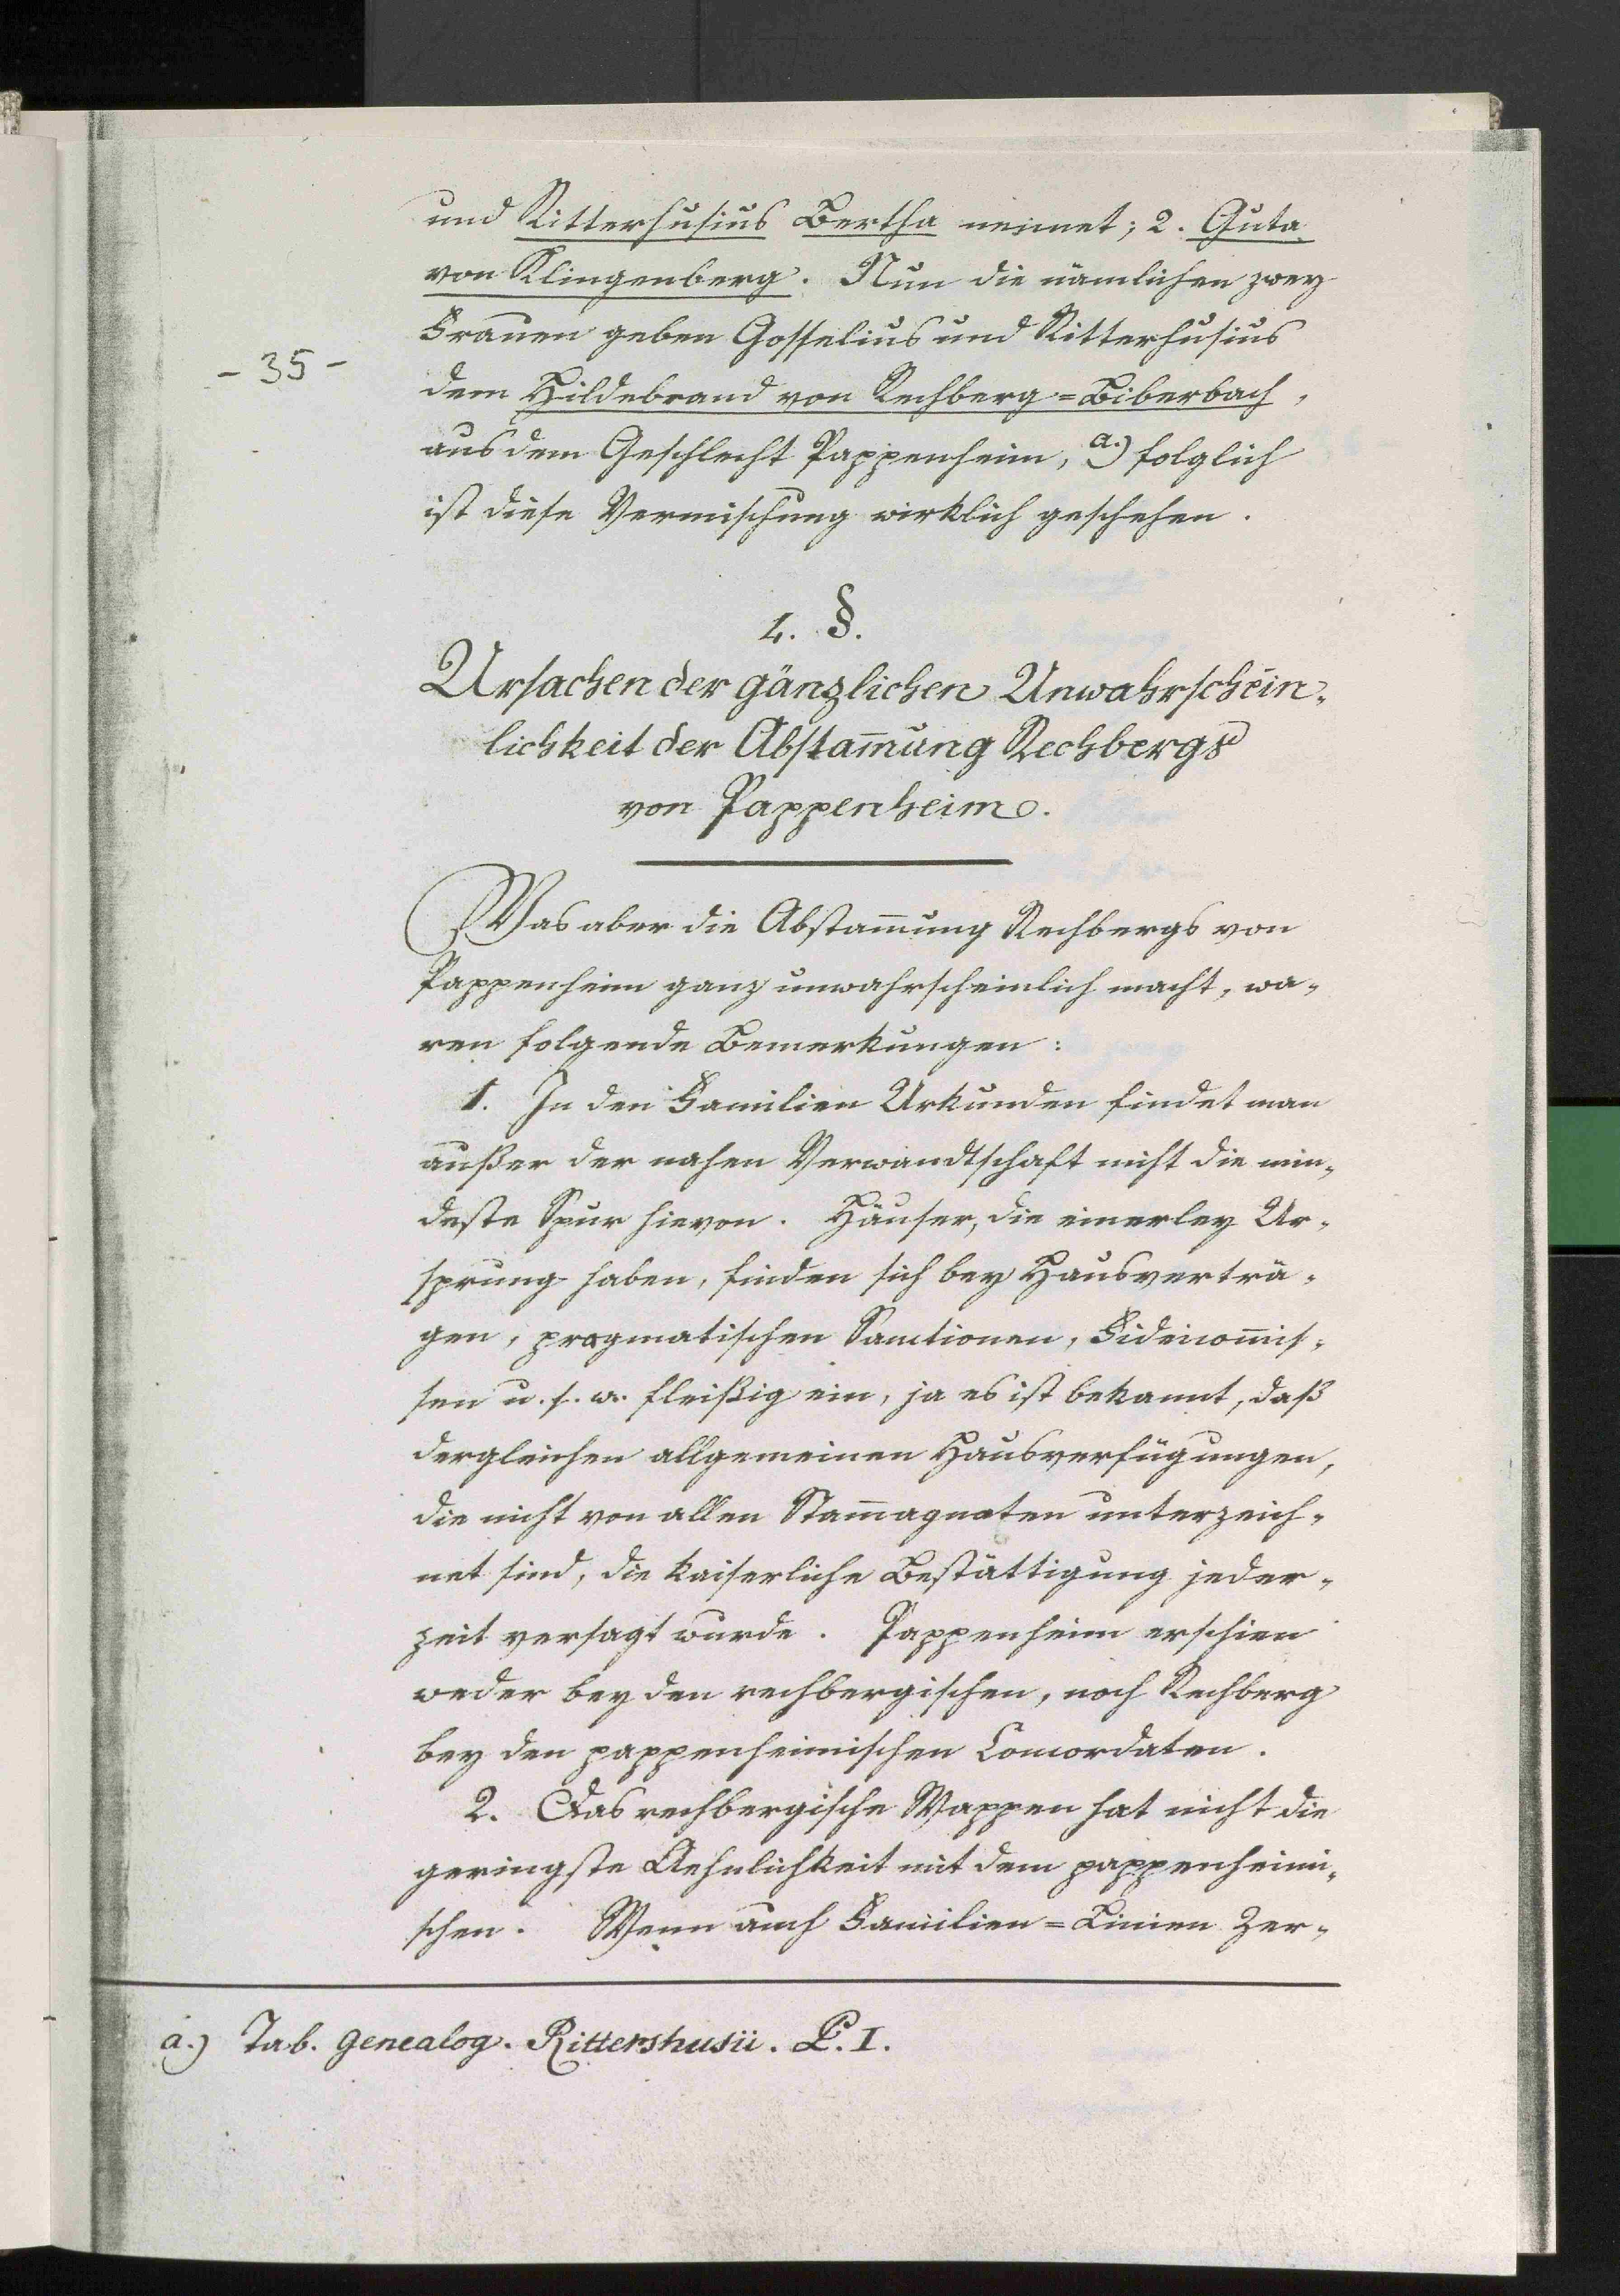 und Ritterhusius Bertha nennet; 2. Guta
von Klingenberg. Nun die nämlichen zwey
Frauen geben Gosselius und Ritterhusius
- 35 -
dem Hildebrand von Rechberg=Biberbach,
aus dem Geschlecht Pappenheim, a.) folglich
ist diese Vermischung wirklich geschehen.
4. §.
Ursachen der gänzlichen Unwahrschein-
lichkeit der Abstam̄ung Rechbergs
von Pappenheim.
Was aber die Abstam̄ung Rechbergs von
Pappenheim ganz unwahrscheinlich macht, wa-
ren folgende Bemerkungen:
1. In den Familien Urkunden findet man
außer der nahen Verwandtschaft nicht die min-
deste Spur hievon. Häuser, die einerley Ur-
sprung haben, finden sich bey Hausverträ-
gen, pragmatischen Sanctionen, Fideicom̄is-
sen u. s. w. fleißig ein, ja es ist bekannt, daß
dergleichen allgemeinen Hausverfügungen,
die nicht von allen Stam̄agnaten unterzeich-
net sind, die kaiserliche Bestättigung jeder-
zeit versagt wurde. Pappenheim erschien
weder bey den rechbergischen, noch Rechberg
bey den pappenheimischen Concordaten.
2. Das rechbergische Wappen hat nicht die
geringste Aehnlichkeit mit dem pappenheimi-
schen. Wenn auch Familien=Linien Zer-
a.) Tab. genealog. Rittershusii. P. I.